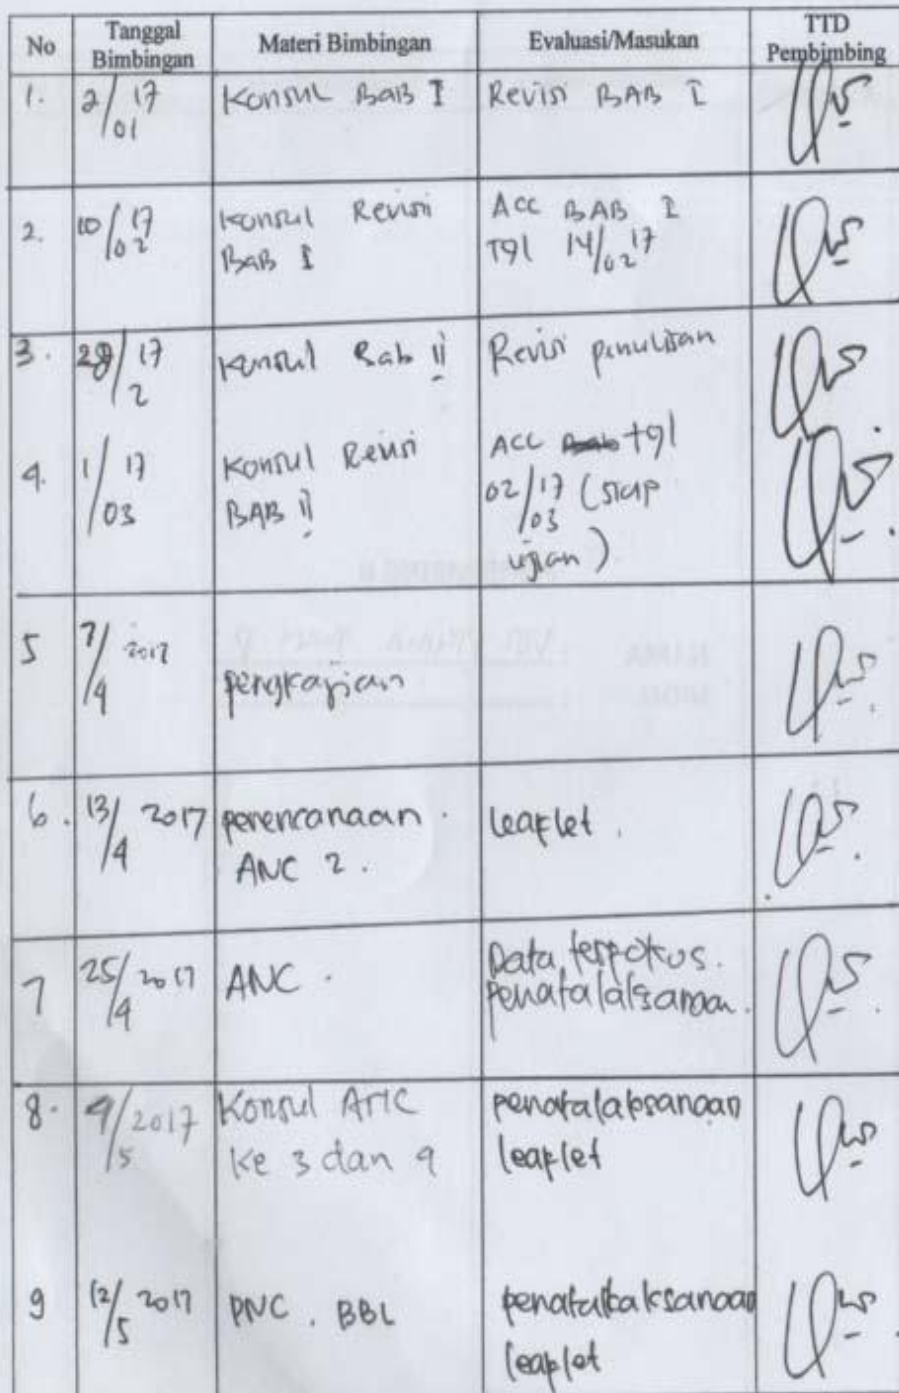 No
Tanggal Bimbingan
Materi Bimbingan
Evaluasi/Masukan
TTD Pembimbing
1. 2/01 17 Konsul BAB I Revisi BAB I
2. 10/02 17 Konsul Revisi Acc BAB I
BAB I Tgl 14/02 17
3. 28/2 17 Konsul Bab II Revisi penulisan
4. 1/03 17 Konsul Revisi ACC tgl
BAB II 02/03 17 (siap
ujian)
5 7/4 2017 pengkajian
6. 13/4 2017 perencanaan. leaflet.
ANC 2.
7 25/4 2017 ANC. Data terfokus.
penatalaksanaan.
8. 9/5 2017 Konsul ANC penatalaksanaan
ke 3 dan 4 leaflet
9 12/5 2017 PNC. BBL penatalaksanaan
leaflet